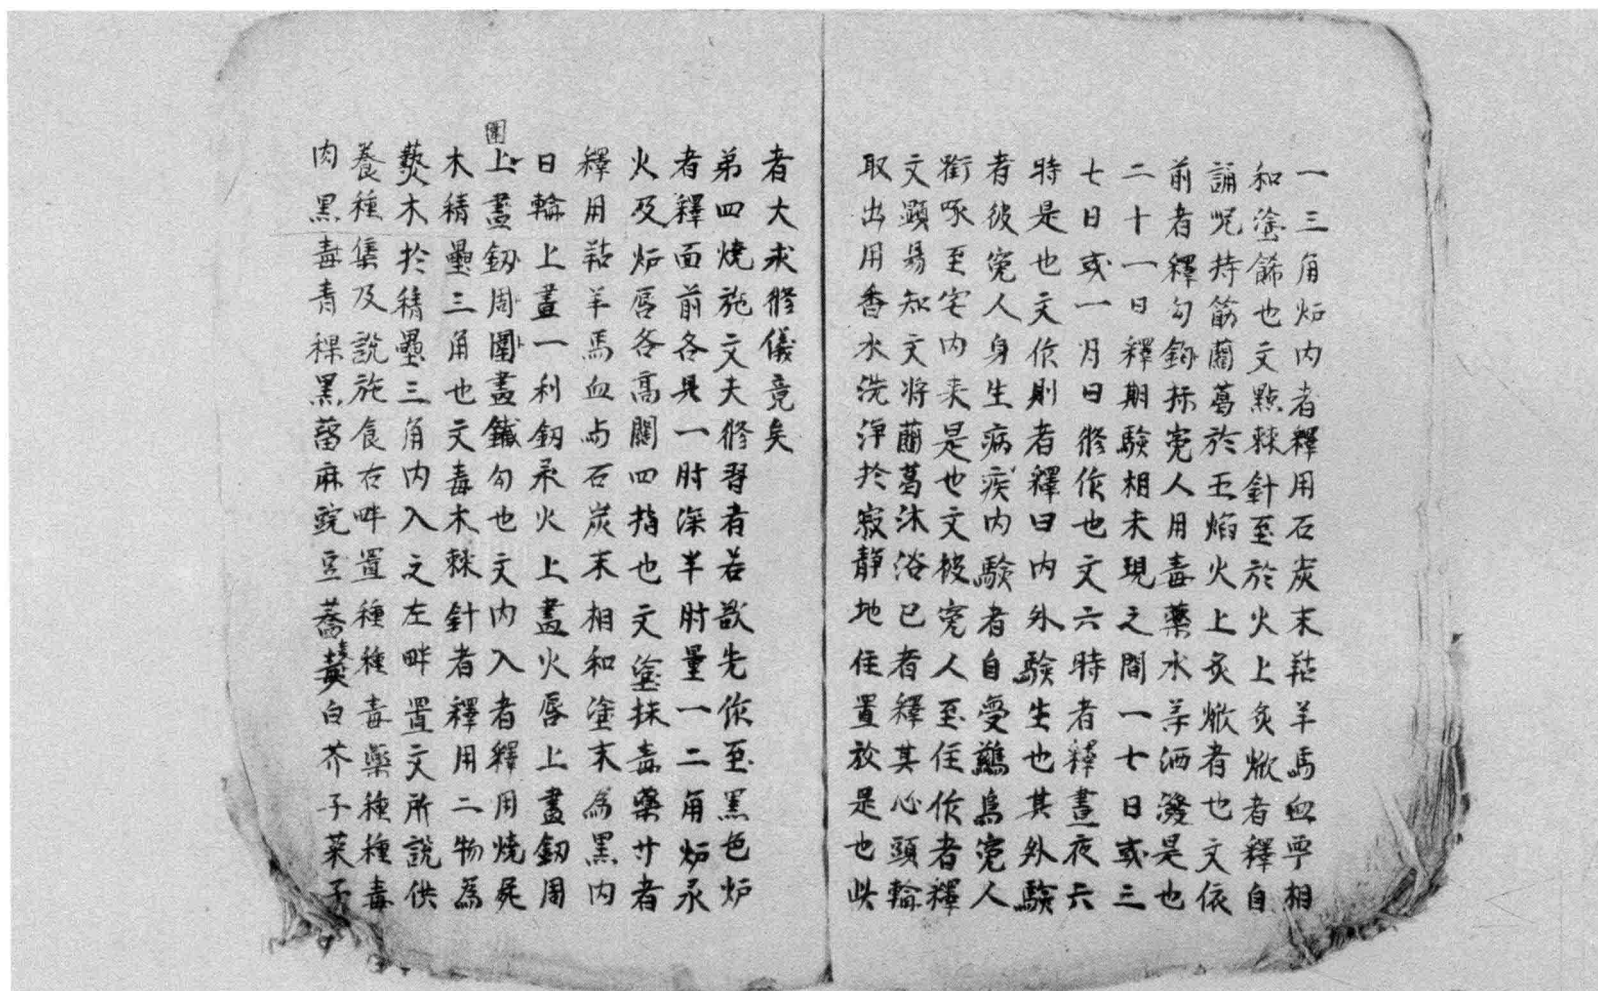 一三角炉内者釋用石炭末羖羊馬血等相
和塗餙也文點棘針至於火上炙焮者釋自
誦呪持筯蘭葛於王焰火上炙焮者也文依
前者釋勾鉤捺寃人用毒藥水等洒潑是也
二十一日釋期驗相未現之間一七日或三
七日或一月日修作也文六時者釋晝夜六
時是也文作則者釋曰内外驗生也其外驗
者彼寃人身生病疾内驗者自受鷧烏寃人
銜啄至宅内来是也文彼寃人至住作者釋
文顯易知文将蘭葛沐浴已者釋其心頭輪
取出用香水洗淨扵寂靜地住置放是也此
者大求修儀竟矣
弟四燒施文夫修習者若欲先作至黑色炉
者釋面前各具一肘深半肘量一二角炉承
火及炉唇各高闊四指也文塗抹毒藥廿者
釋用羖羊馬血与石炭末相和塗末為黑内
日輪上畫一利釰承火上畫火唇上畫釰周
圍
上畫釰周圍畫鐵勾也文内入者釋用燒屍
木積壘三角也文毒木棘針者釋用二物為
爇木扵積壘三角内入文左畔置文所說供
養種集及說施食右畔置種種毒藥種種毒
肉黑毒青稞黑蓞麻豌豆蕎麥白芥子菜子